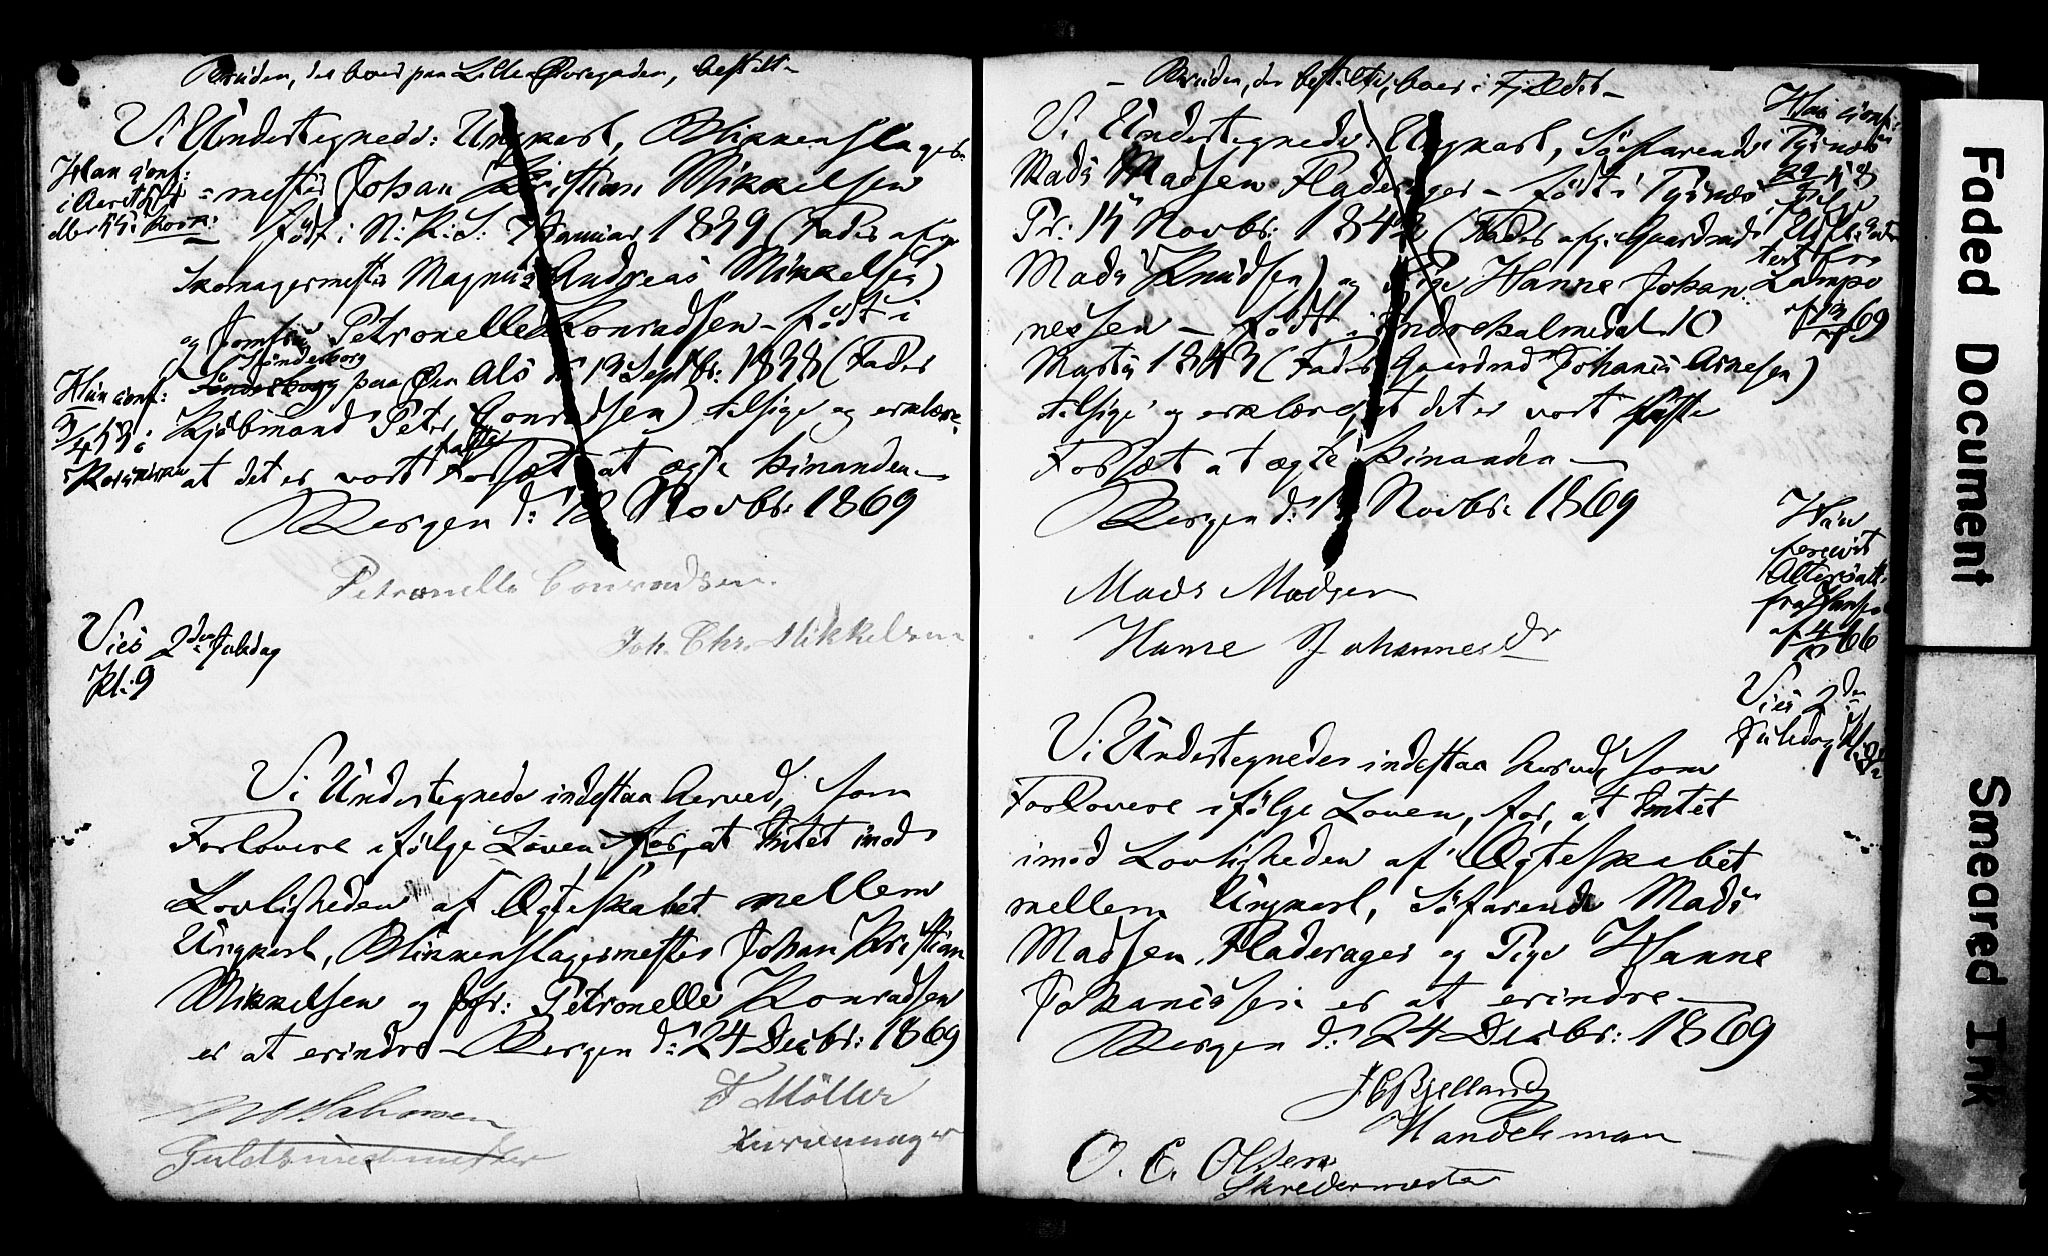 Bruden, der boer paa Lille Øvregaden, bestilt
Vi Undertegnede: Ungkarl, Blikkenslager-
mester Johan Kristian Mikkelsen
Han conf:
i Aaret
eller 55 i
født i N: K: S: 7 Januar 1839 (Fader afg:
Skomagermester Magnus Andreas Mikkelsen)
og Jomfru Petronelle Konradsen – født i
Sönderborg
Sönderborg paa Øen Als d: 19 Septbr: 1838 (Fader
Hun conf:
Kjöbmand Peter Conradsen) tilsige og erklære,
faste
at det er vort Forsæt at ægte hinanden –
Bergen d: 12 Novbr: 1869
Petronelle Conradsen.
Joh. Chr. Mikkelsen
Vies 2den Juledag
Kl: 9
Vi Undertegnede indestaa herved, som
Forlovere ifölge Loven, for, at Intet imod
Lovligheden af Ægteskabet mellem
Ungkarl, Blikkenslagermester Johan Kristian
Mikkelsen og Jfr: Petronelle Konradsen
er at erindre – Bergen d: 24 Decbr: 1869
Salomonsen
Guldsmedmester
F Möller
– Bruden, der bestilte, boer i Fjeldet –
Vi Undertegnede: Ungkarl, Söefarende
Mads Madsen Fladerager – født i Tysnæs
Pr: 15 Novbr: 1842 (Fader afg: Gaardmd
Mads Knudsen) og Pige Hanne Johan-
nessen – födt i Indrehalmedal 10
Marts 1843 (Fader Gaardmd Johanes Arnesen)
tilsige og erklære, at det er vort faste
Forsæt at ægte hinanden –
Bergen d: 12 Novbr: 1869
Mads Madsen
Hanne Johannesdr
Han conf:
i Tysnæs
Lampe
69
Hun
foreviist
Altersatt:
fra Lampe
af 4/11 66
Vies 2den
Juledag Kl:
Vi Undertegnede indestaa herved, som
Forlovere ifölge Loven, for, at Intet
imod Lovligheden af Ægteskabet
mellem Ungkarl, Söfarende Mads
Madsen Fladerager og Pige Hanne
Johanessen er at erindre –
Bergen d: 24 Decbr: 1869
Bjelland
Handelsman
O. E. Olsen
Skredermester
Faded Document
Smeared Ink